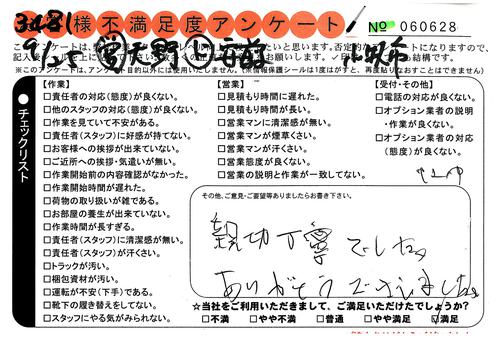 お客様不満足度アンケート
№ 060628
※このアンケートは、アンケート目的以外には使用いたしません。(※情報保護シールは1度がすと、再度貼りなおすことはできません)
チェックリスト
【作業】
□責任者の対応(態度)が良くない。
□他のスタッフの対応(態度)が良くない。
□作業を見ていて不安がある。
□責任者(スタッフ)に好感が持てない。
□お客様への挨拶が出来ていない。
□ご近所への挨拶・気遣いが無い。
□作業開始前の内容確認がなかった。
□作業開始時間が遅れた。
□荷物の取り扱いが雑である。
□お部屋の養生が出来ていない。
□作業時間が長すぎる。
□責任者(スタッフ)に清潔感が無い。
□責任者(スタッフ)が汗くさい。
□トラックが汚い。
□梱包資材が汚い。
□運転が不安(下手)である。
□靴下の履き替えをしてない。
□スタッフにやる気がみられない。
【営業】
□見積もり時間に遅れた。
□見積もり時間が長い。
□営業マンに清潔感が無い。
□営業マンが煙草くさい。
□営業マンが汗くさい。
□営業態度が良くない。
□営業の説明と作業が一致してない。
【受付・その他】
□電話の対応が良くない。
□オプション業者の説明・作業が良くない。
□オプション業者の対応(態度)が良くない。
その他、ご意見・ご要望等ありましたらお書き下さい。
親切丁寧でした。
ありがとうございました。
☆当社をご利用いただきまして、ご満足いただけたでしょうか?
□不満 □やや不満 □普通 □やや満足 □満足